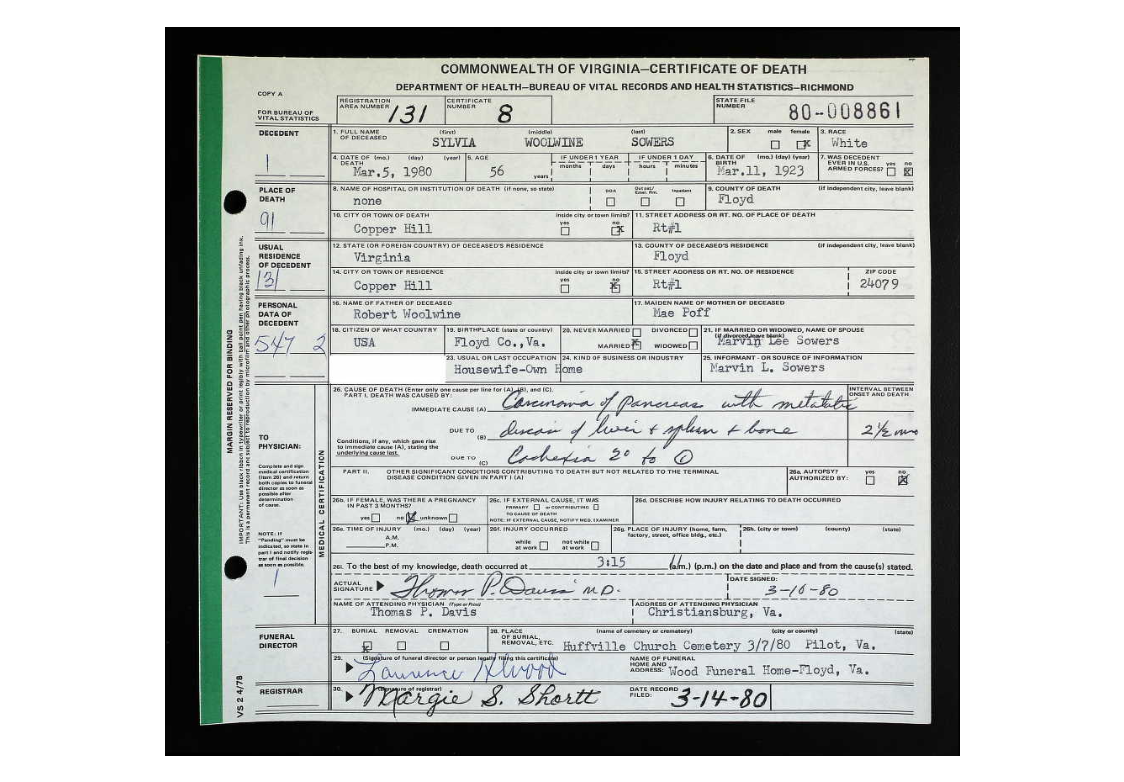 COMMONWEALTH OF VIRGINIA—CERTIFICATE OF DEATH
DEPARTMENT OF HEALTH—BUREAU OF VITAL RECORDS AND HEALTH STATISTICS—RICHMOND
COPY A
FOR BUREAU OF VITAL STATISTICS
REGISTRATION AREA NUMBER 131 CERTIFICATE NUMBER 8 STATE FILE NUMBER 80-008861
DECEDENT
1. FULL NAME OF DECEASED (first) (middle) (last) 2. SEX male female 3. RACE
SYLVIA WOOLWINE SOWERS x White
1
4. DATE OF DEATH (mo.) (day) (year) 5. AGE IF UNDER 1 YEAR IF UNDER 1 DAY 6. DATE OF BIRTH (mo.) (day) (year) 7. WAS DECEDENT EVER IN U.S. ARMED FORCES? yes no
Mar.5, 1980 56 years months days hours minutes Mar.11, 1923 x
PLACE OF DEATH
8. NAME OF HOSPITAL OR INSTITUTION OF DEATH (if none, so state) DOA Inpatient 9. COUNTY OF DEATH (if independent city, leave blank)
none Floyd
91
10. CITY OR TOWN OF DEATH inside city or town limits? yes no 11. STREET ADDRESS OR RT. NO. OF PLACE OF DEATH
Copper Hill x Rt#1
USUAL RESIDENCE OF DECEDENT
12. STATE (OR FOREIGN COUNTRY) OF DECEASED'S RESIDENCE 13. COUNTY OF DECEASED'S RESIDENCE (if independent city, leave blank)
Virginia Floyd
131
14. CITY OR TOWN OF RESIDENCE inside city or town limits? yes no 15. STREET ADDRESS OR RT. NO. OF RESIDENCE ZIP CODE
Copper Hill x Rt#1 24079
PERSONAL DATA OF DECEDENT
16. NAME OF FATHER OF DECEASED 17. MAIDEN NAME OF MOTHER OF DECEASED
Robert Woolwine Mae Poff
547 2
18. CITIZEN OF WHAT COUNTRY 19. BIRTHPLACE (state or country) 20. NEVER MARRIED DIVORCED 21. IF MARRIED OR WIDOWED, NAME OF SPOUSE (if divorced, leave blank)
USA Floyd Co.,Va. MARRIED x WIDOWED Marvin Lee Sowers
23. USUAL OR LAST OCCUPATION 24. KIND OF BUSINESS OR INDUSTRY 25. INFORMANT - OR SOURCE OF INFORMATION
Housewife-Own Home Marvin L. Sowers
MARGIN RESERVED FOR BINDING
MEDICAL CERTIFICATION
26. CAUSE OF DEATH (Enter only one cause per line for (A), (B), and (C).
PART I. DEATH WAS CAUSED BY: INTERVAL BETWEEN ONSET AND DEATH
IMMEDIATE CAUSE (A) Carcinoma of Pancreas with metatatic
DUE TO (B) disease of liver + spleen + bone 2½ mos
Conditions, if any, which gave rise to immediate cause (A), stating the underlying cause last.
DUE TO (C) Cachexia 2° to ①
TO PHYSICIAN:
Complete and sign medical certification (item 26) and return both copies to funeral director as soon as possible after determination of cause.
PART II. OTHER SIGNIFICANT CONDITIONS CONTRIBUTING TO DEATH BUT NOT RELATED TO THE TERMINAL DISEASE CONDITION GIVEN IN PART I (A) 26a. AUTOPSY? AUTHORIZED BY: yes no x
26b. IF FEMALE, WAS THERE A PREGNANCY IN PAST 3 MONTHS? 26c. IF EXTERNAL CAUSE, IT WAS 26d. DESCRIBE HOW INJURY RELATING TO DEATH OCCURRED
yes no x unknown PRIMARY or CONTRIBUTING TO CAUSE OF DEATH
NOTE: IF EXTERNAL CAUSE, NOTIFY MED. EXAMINER
NOTE: IF "Pending" must be indicated, so state in part I and notify registrar of final decision as soon as possible.
26e. TIME OF INJURY (mo.) (day) (year) 26f. INJURY OCCURRED 26g. PLACE OF INJURY (home, farm, factory, street, office bldg., etc.) 26h. (city or town) (county) (state)
A.M. P.M. while at work not while at work
1
26i. To the best of my knowledge, death occurred at 3:15 (a.m.) (p.m.) on the date and place and from the cause(s) stated.
ACTUAL SIGNATURE Thomas P. Davis M.D. DATE SIGNED: 3-10-80
NAME OF ATTENDING PHYSICIAN (Type or Print) ADDRESS OF ATTENDING PHYSICIAN
Thomas P. Davis Christiansburg, Va.
FUNERAL DIRECTOR
27. BURIAL REMOVAL CREMATION 28. PLACE OF BURIAL, REMOVAL, ETC. (name of cemetery or crematory) (city or county) (state)
x Huffville Church Cemetery 3/7/80 Pilot, Va.
29. (Signature of funeral director or person legally filing this certificate) NAME OF FUNERAL HOME AND ADDRESS: Wood Funeral Home-Floyd, Va.
REGISTRAR
30. (signature of registrar) Margie S. Shortt DATE RECORD FILED: 3-14-80
VS 2 4/78